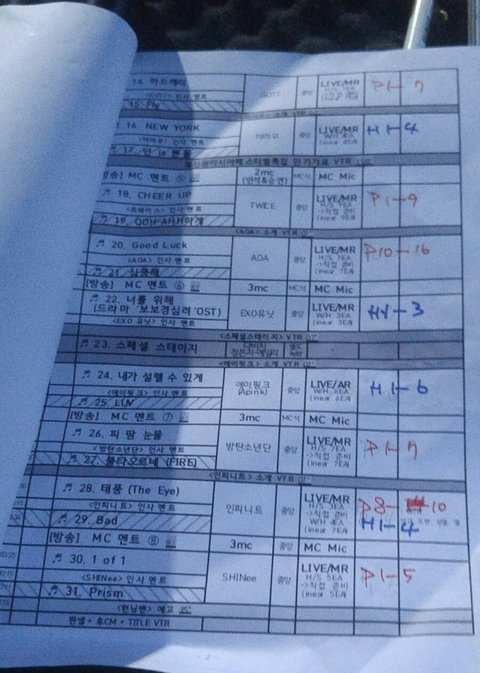 14. 하드캐리
인사 멘트
GOT7
중앙
LIVE/MR
P1-7
15. Fly
16. NEW YORK
<마마무> 인사 멘트
마마무
중앙
LIVE/MR
H1-4
인기가요 VTR
[방송] MC 멘트 ⑤
2mc
MC석
MC Mic
18. CHEER UP
<트와이스> 인사 멘트
TWICE
중앙
LIVE/MR
H/S 9EA
->직접 준비
(inear 9EA)
P1-9
19. OOH-AHH하게
<AOA> 소개 VTR
20. Good Luck
<AOA> 인사 멘트
AOA
중앙
LIVE/MR
H/S 7EA
->직접 준비
(inear 7EA)
P10-16
21. 심쿵해
[방송] MC 멘트 ⑥
3mc
MC석
MC Mic
22. 너를 위해
(드라마 '보보경심려'OST)
<EXO 유닛> 인사 멘트
EXO유닛
중앙
LIVE/MR
W/H 3EA
(inear 3EA)
H1-3
<스페셜스테이지> VTR
23. 스페셜 스테이지
<에이핑크> 소개 VTR
24. 내가 설렐 수 있게
<에이핑크> 인사 멘트
에이핑크
(Apink)
중앙
LIVE/AR
W/H 6EA
(inear 6EA)
H1-6
25. LUV
[방송] MC 멘트 ⑦
3mc
MC석
MC Mic
26. 피 땀 눈물
<방탄소년단> 인사 멘트
방탄소년단
중앙
LIVE/MR
H/S 7EA
->직접 준비
(inear 7EA)
P1-7
27. 불타오르네 (FIRE)
<인피니트> 소개 VTR
28. 태풍 (The Eye)
<인피니트> 인사 멘트
인피니트
중앙
LIVE/MR
H/S 3EA
->직접 준비
W/H 4EA
(inear 7EA)
P8-10
H1-4
29. Bad
[방송] MC 멘트 ⑧
3mc
중앙
MC Mic
30. 1 of 1
<SHINee> 인사 멘트
SHINee
중앙
LIVE/MR
H/S 5EA
->직접 준비
(inear 5EA)
P1-5
31. Prism
<런닝맨> 예고
판넬 + 후CM + TITLE VTR